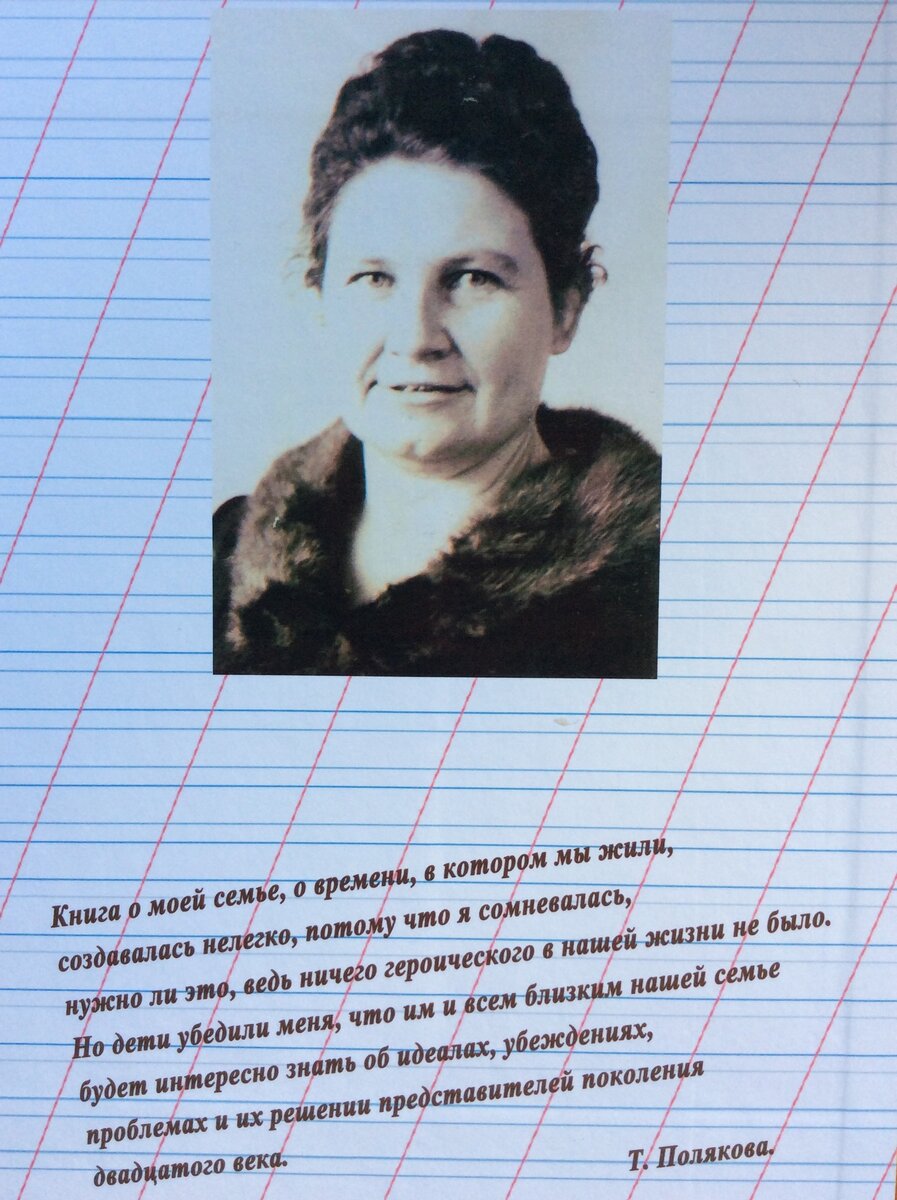 Книга о моей семье, о времени, в котором мы жили,
создавалась нелегко, потому что я сомневалась,
нужно ли это, ведь ничего героического в нашей жизни не было.
Но дети убедили меня, что им и всем близким нашей семье
будет интересно знать об идеалах, убеждениях,
проблемах и их решении представителей поколения
двадцатого века.
Т. Полякова.